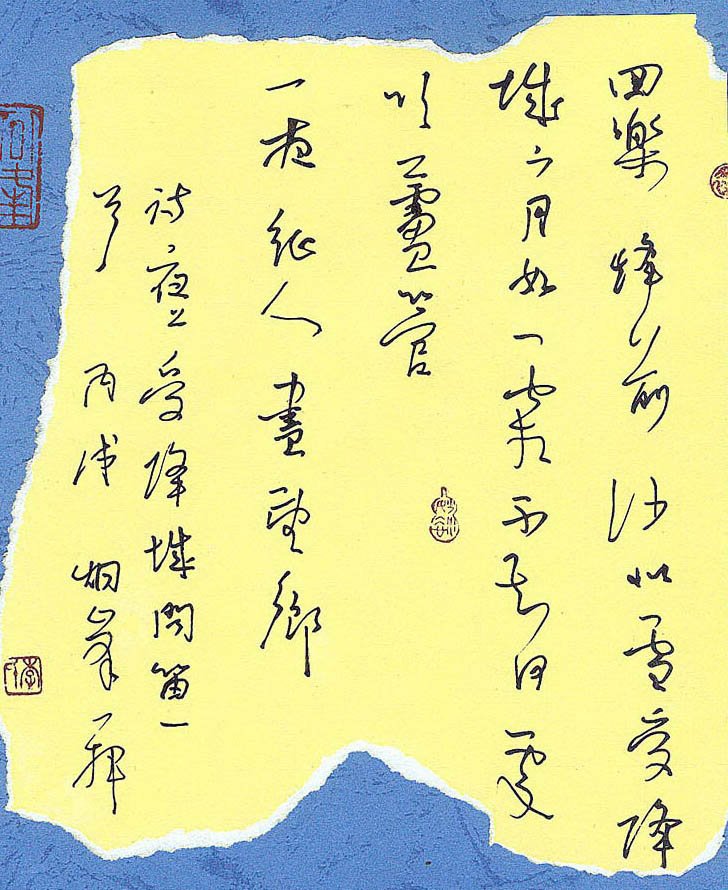 回樂烽前沙似雪受降
城下月如霜不知何處
吹蘆管
一夜征人盡望鄉
詩夜上受降城聞笛一
首 丙戌 烟峯拜